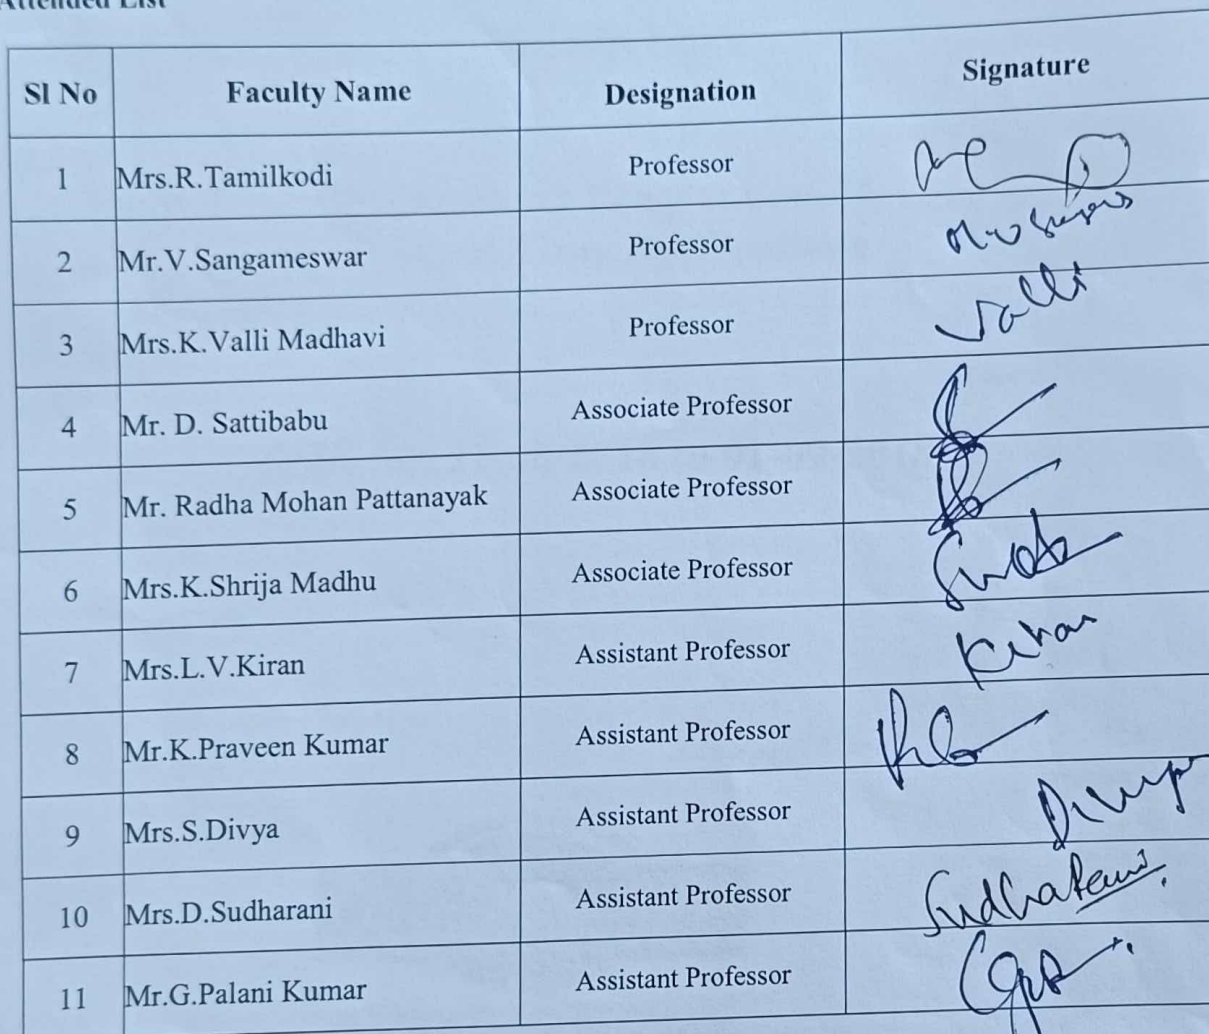 Attended List
Sl No Faculty Name Designation Signature
1 Mrs.R.Tamilkodi Professor
2 Mr.V.Sangameswar Professor
3 Mrs.K.Valli Madhavi Professor Valli
4 Mr. D. Sattibabu Associate Professor
5 Mr. Radha Mohan Pattanayak Associate Professor
6 Mrs.K.Shrija Madhu Associate Professor
7 Mrs.L.V.Kiran Assistant Professor Kiran
8 Mr.K.Praveen Kumar Assistant Professor
9 Mrs.S.Divya Assistant Professor Divya
10 Mrs.D.Sudharani Assistant Professor SudhaRani
11 Mr.G.Palani Kumar Assistant Professor